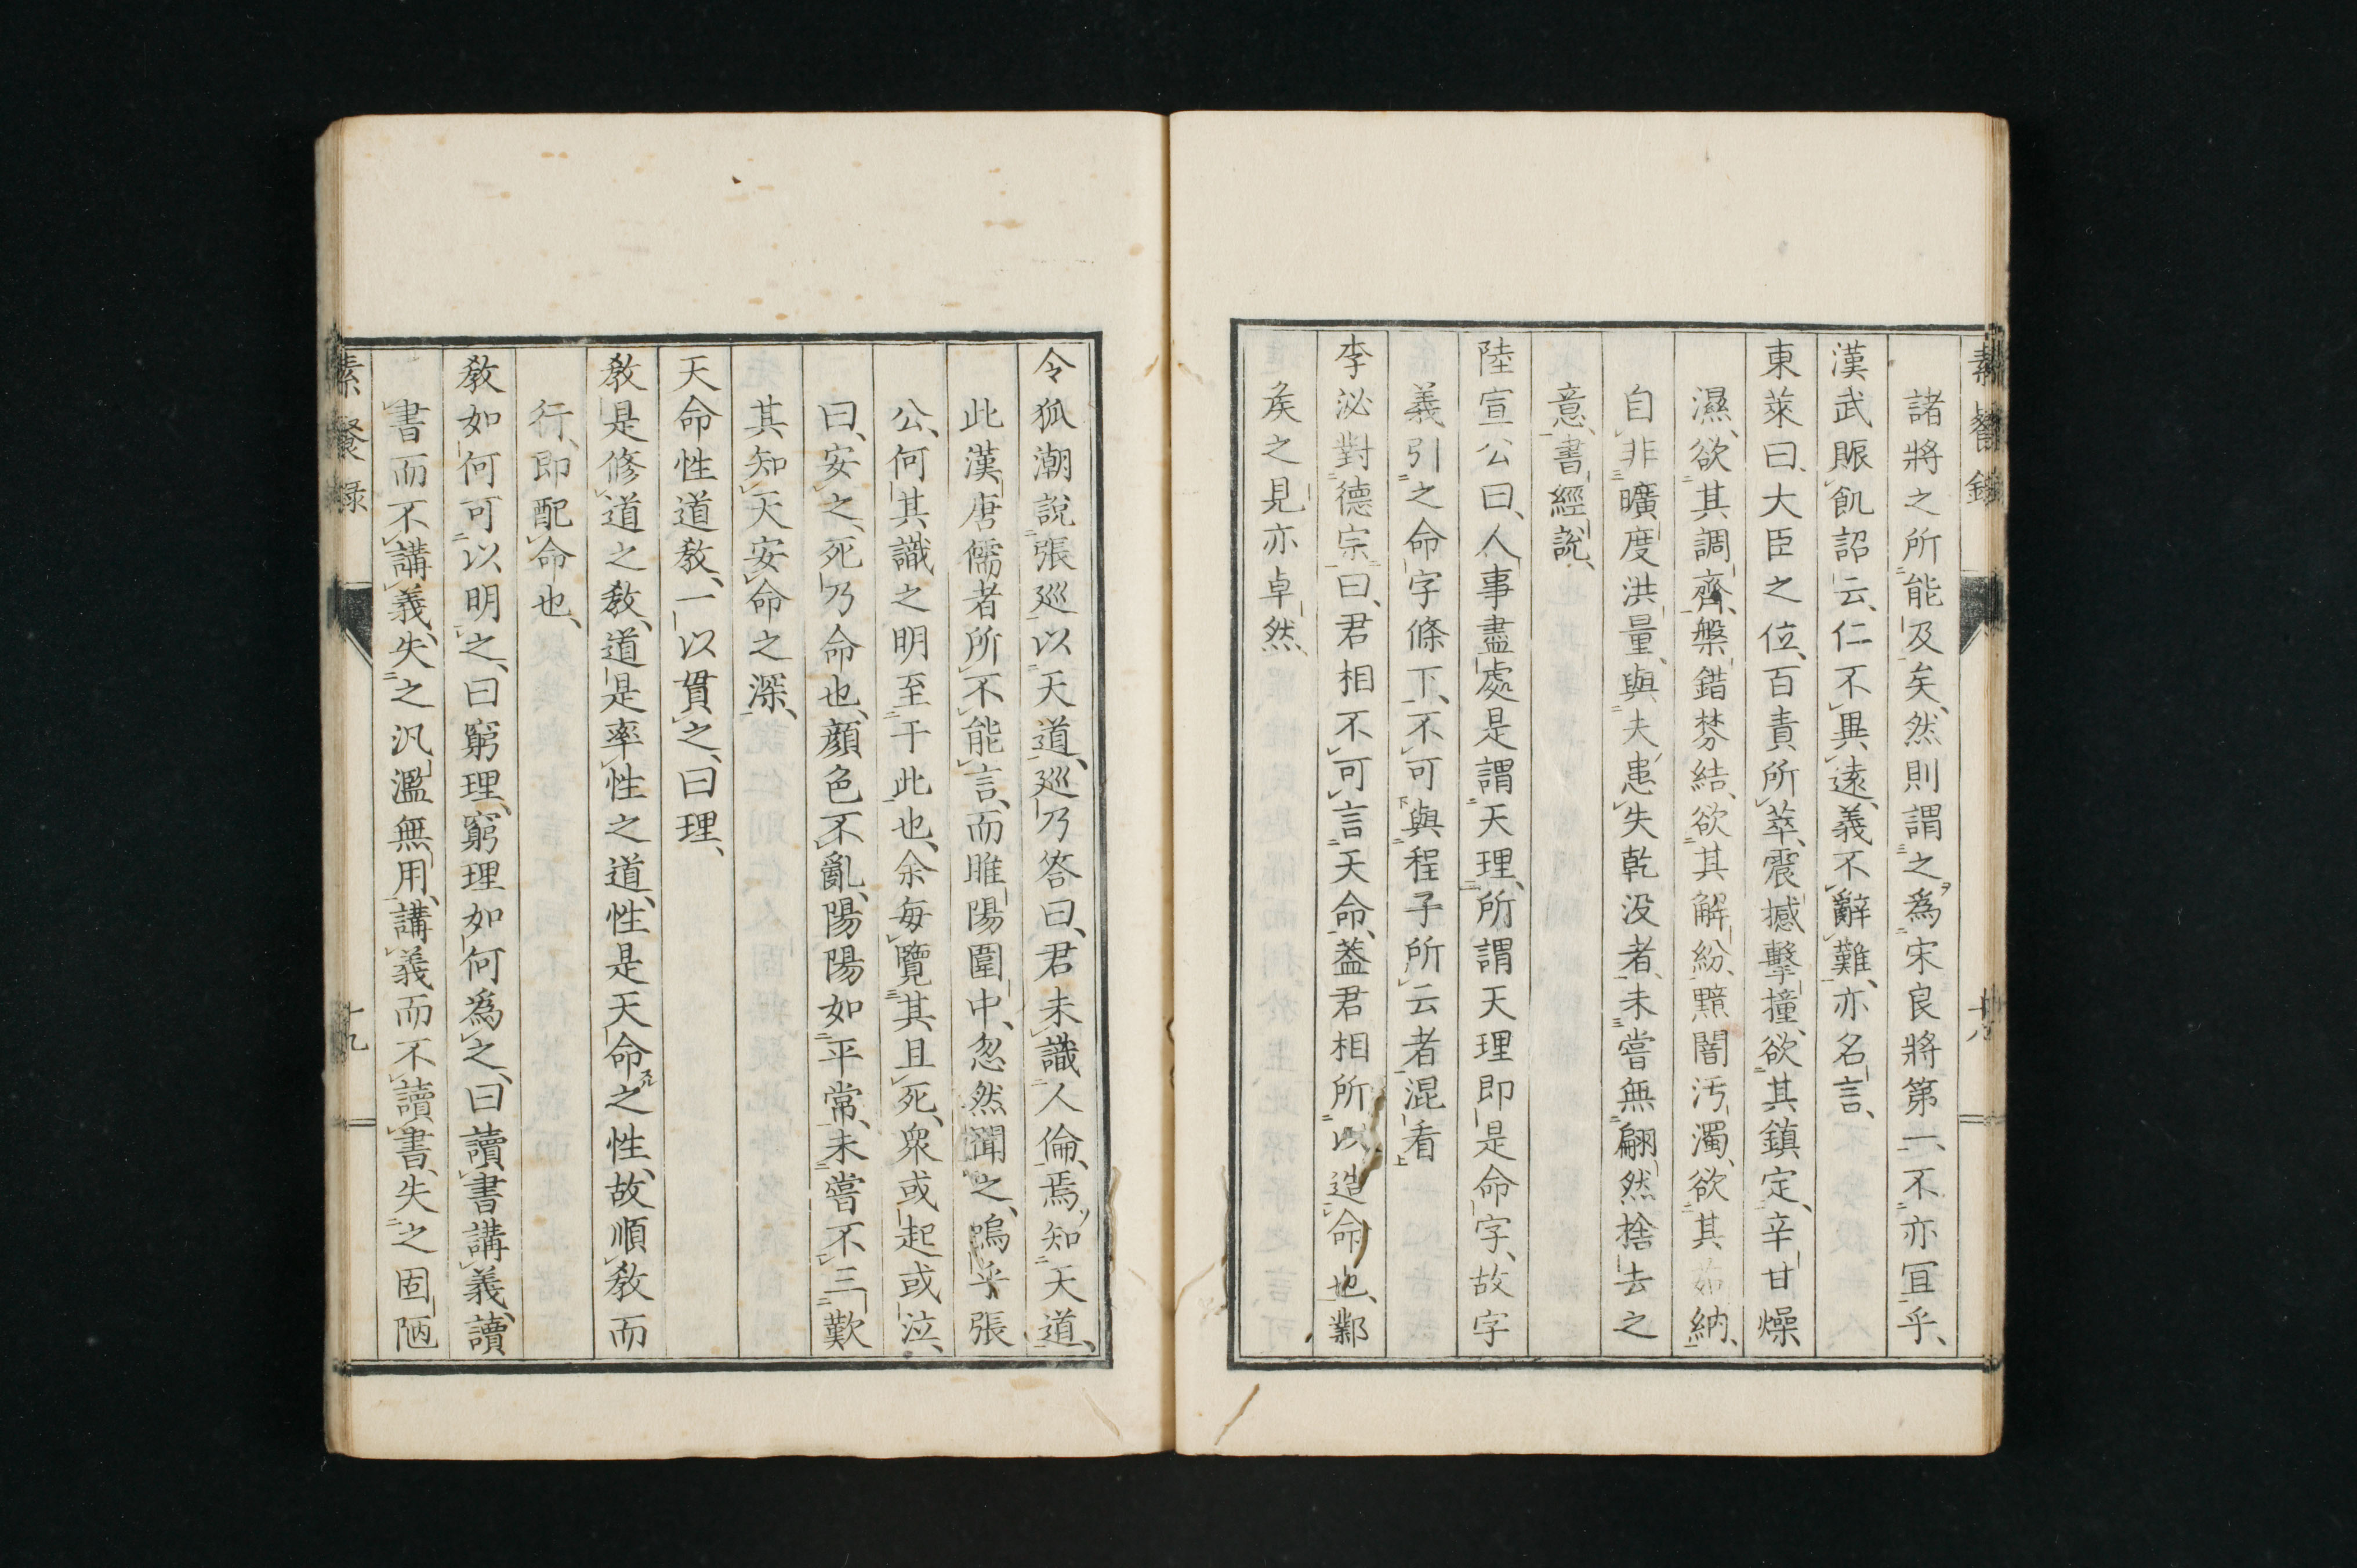 素餐錄
十八
諸將之所能及矣、然則謂之為宋良將第一、不亦冝乎、
漢武賑飢詔云、仁不異遠、義不辭難、亦名言、
東萊曰、大臣之位、百責所萃、震撼擊撞、欲其鎮定、辛甘燥
濕、欲其調齊、槃錯棼結、欲其解紛、黯闇汚濁、欲其茹納、
自非曠度洪量、與夫患失乾没者、未嘗無翩然捨去之
意、書經說、
陸宣公曰、人事盡處是謂天理、所謂天理即是命字、故字
義引之命字條下、不可與程子所云者混看
李泌對德宗曰、君相不可言天命、葢君相所以造命也、鄴
矦之見亦卓然、
令狐潮說張巡以天道、巡乃答曰、君未識人倫、焉知天道、
此漢唐儒者所不能言、而睢陽圍中、忽然聞之、嗚乎張
公、何其識之明至于此也、余每覽其且死、衆或起或泣、
曰、安之、死乃命也、顔色不亂、陽陽如平常、未嘗不三歎
其知天安命之深、
天命性道教、一以貫之、曰理、
教是修道之教、道是率性之道、性是天命之性、故順教而
行、即配命也、
教如何可以明之、曰窮理、窮理如何為之、曰讀書講義、讀
書而不講義、失之汎濫無用、講義而不讀書、失之固陋
素餐録
十九